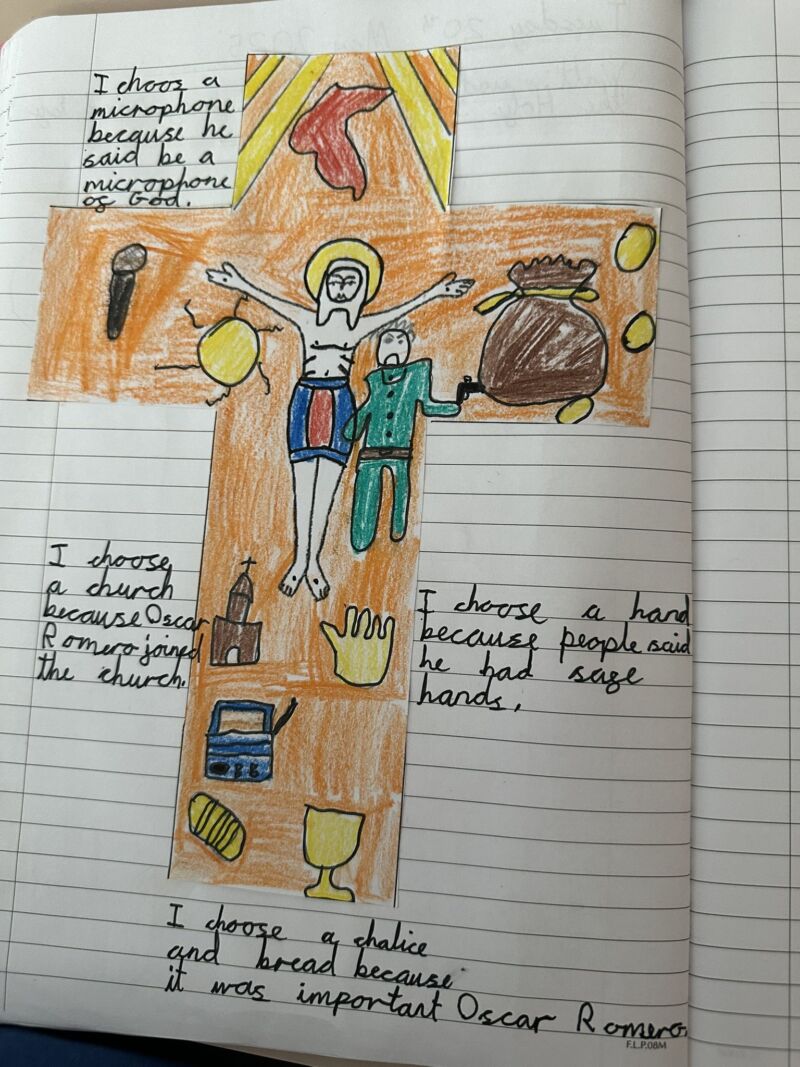 I choos a
microphone
because he
said be a
microphone
of God.
I choose
a church
because Oscar
Romero joined
the church.
I choose a hand
because people said
he had sage
hands.
I choose a chalice
and bread because
it was important Oscar Romero.
F.L.P.08M